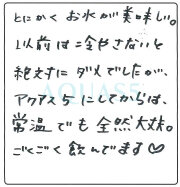 とにかくお水が美味しい。
以前は冷やさないと
絶対にダメでしたが、
アクアス5にしてからは、
常温でも全然大丈夫。
ごくごく飲んでます♡
AQUAS5